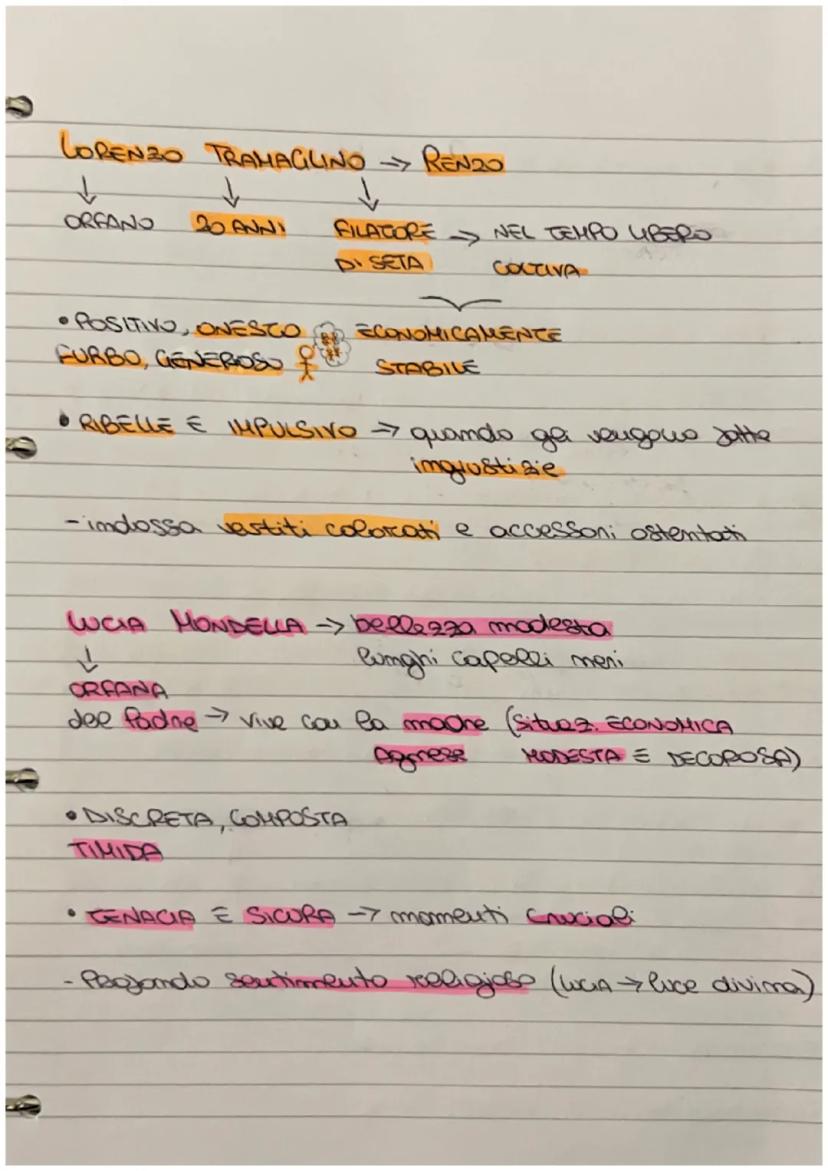 LORENZO TRAMAGLINO → RENZO
↓ ↓ ↓
ORFANO 20 ANNI FILATORE → NEL TEMPO LIBERO
DI SETA COLTIVA
• POSITIVO, ONESTO ECONOMICAMENTE
FURBO, GENEROSO STABILE
• RIBELLE E IMPULSIVO → quando gli vengono fatte
ingiustizie
- indossa vestiti colorati e accessori ostentati
LUCIA MONDELLA → bellezza modesta
↓ lunghi capelli neri
ORFANA
del Padre → vive con la madre (Situaz. ECONOMICA
Agnese MODESTA E DECOROSA)
• DISCRETA, COMPOSTA
TIMIDA
• TENACIA E SICURA → momenti cruciali
- Profondo sentimento religioso (LUCIA → luce divina)